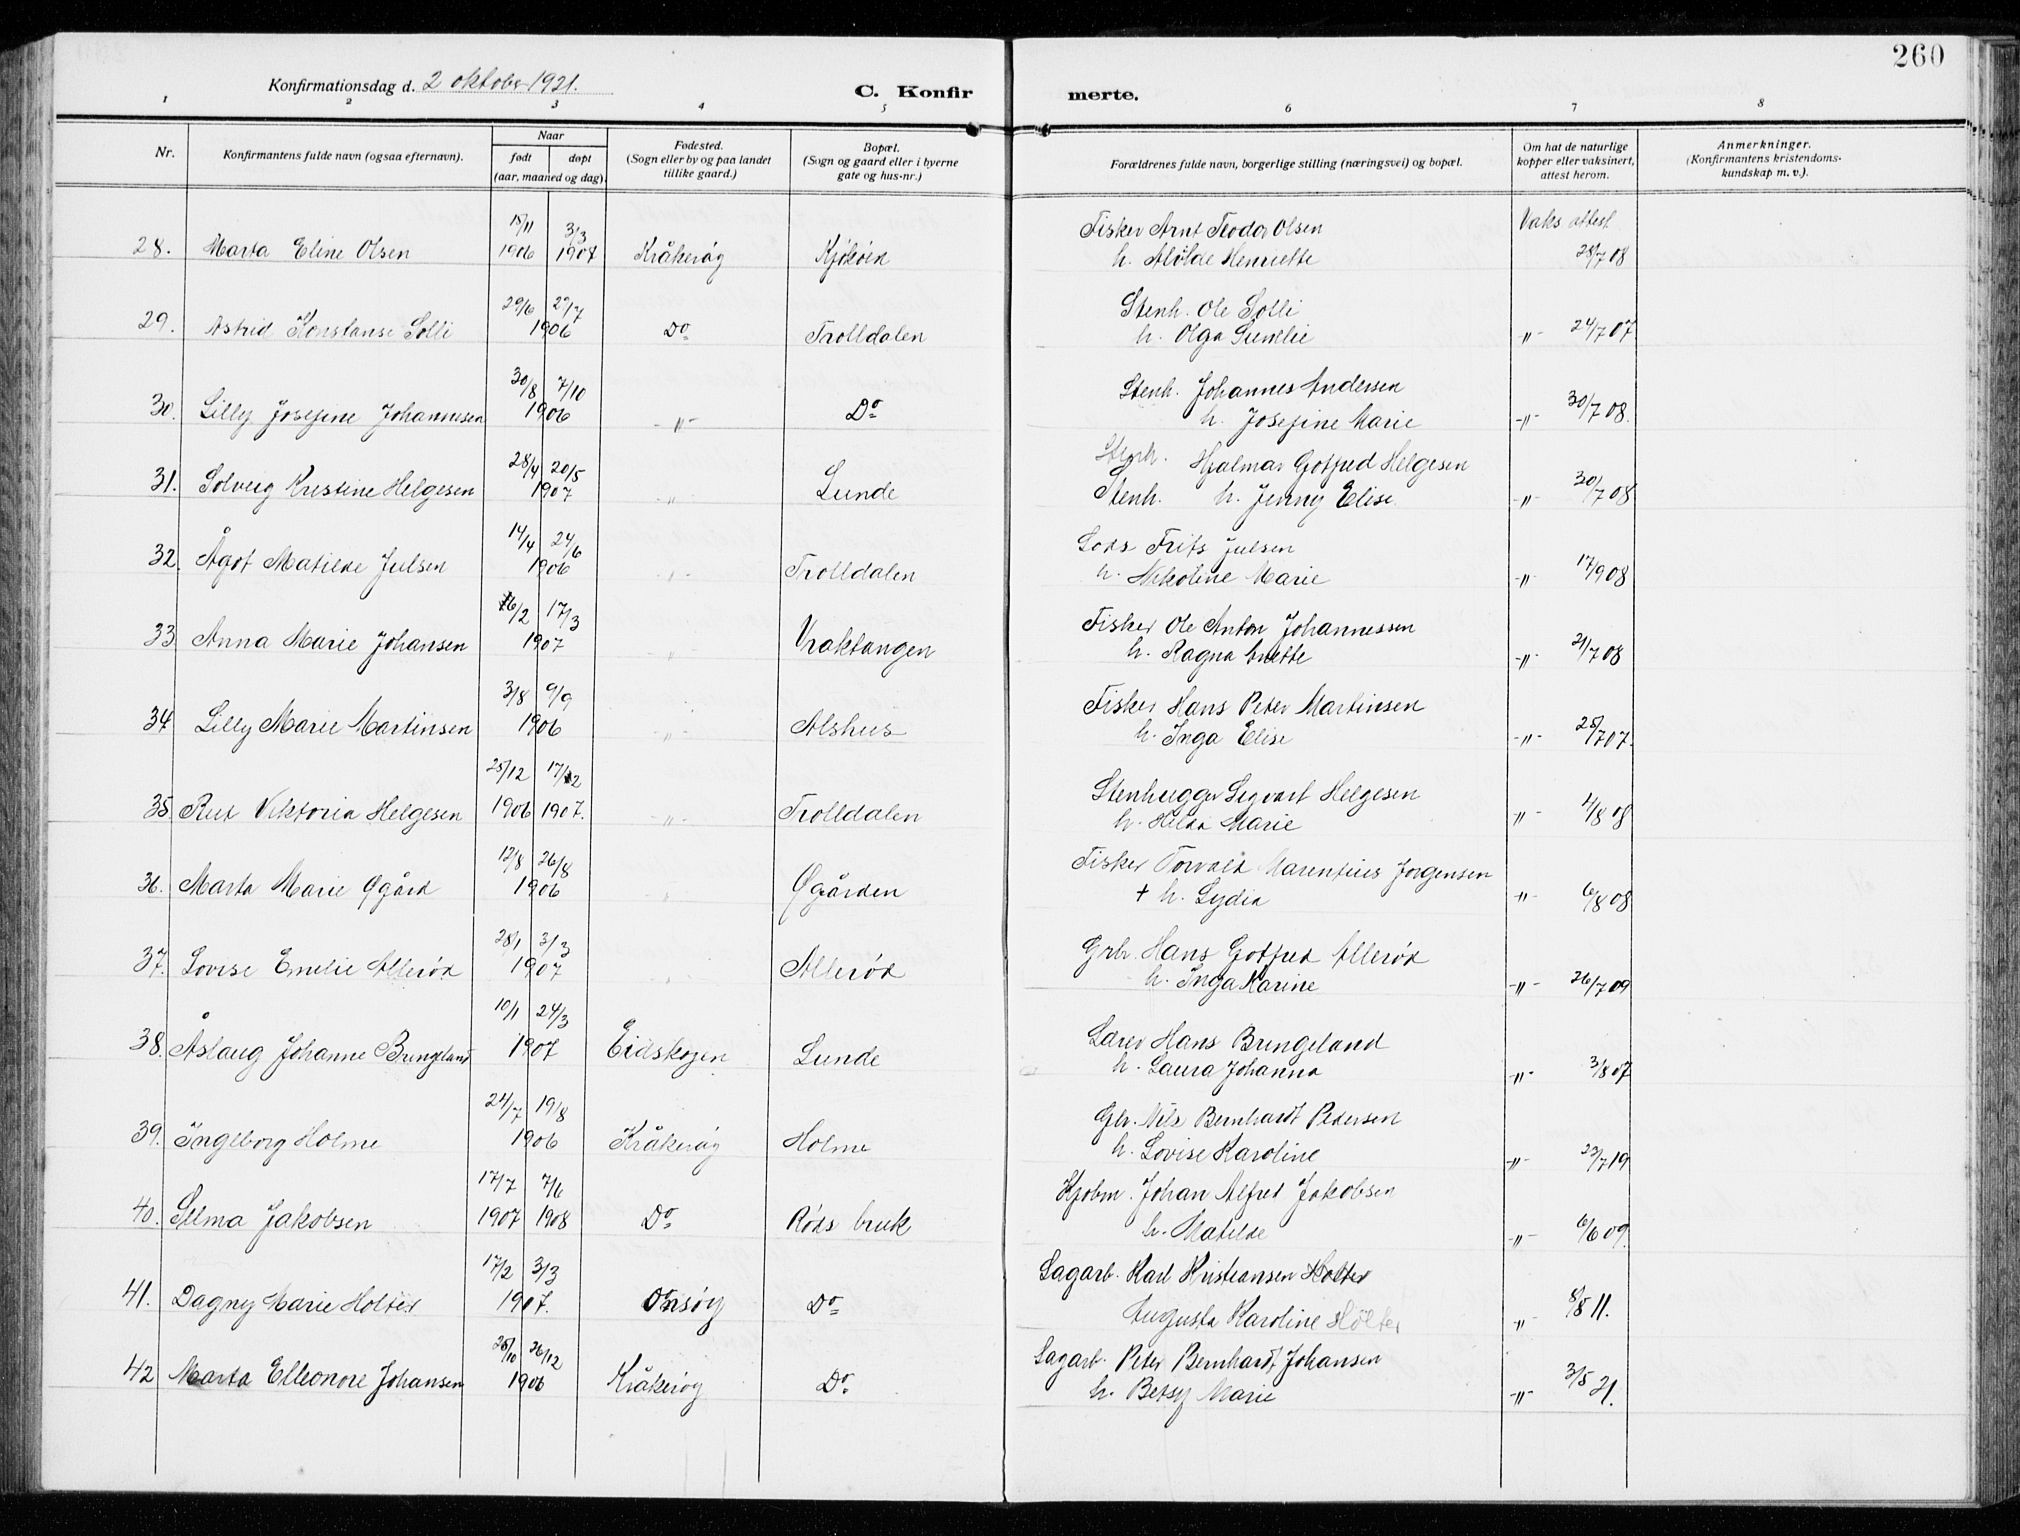 260
Konfirmationsdag d. 2 oktober 1921.
C. Konfirmerte.
1 2 3 4 5 6 7 8
Nr.
Konfirmantens fulde navn (ogsaa efternavn).
Naar
født
døpt
(aar, maaned og dag).
Fødested.
(Sogn eller by og paa landet
tillike gaard.)
Bopæl.
(Sogn og gaard eller i byerne
gate og hus-nr.)
Forældrenes fulde navn, borgerlige stilling (næringsvei) og bopæl.
Om hat de naturlige
kopper eller vaksinert,
attest herom.
Anmerkninger.
(Konfirmantens kristendoms-
kundskap m. v.).
15/11 3/3 Fisker Arnt Teodor Olsen Vaks attest
28. Marta Eline Olsen 1906 1907 Kråkerøy Kjøkøen h. Henriette 28/7 08
29/6 29/7 Stenh. Ole Solli
29. Astrid Konstanse Solli 1906 Do Trolldalen h. Olga -"- 24/7 07
30/8 7/10 Stenh. Johannes Andersen
30. Lilly Josefine Johannesen 1906 -"- Do h. Josefine Marie -"- 30/7 08.
28/4 20/5 Stenh. Hjalmar Gotfred Helgesen
31. Solveig Kristine Helgesen 1907 " Lunde Stenh. h. Jenny Elise -"- 30/7 08
14/4 24/6 Lods Frits Julsen
32. Ågot Matilde Julsen 1906 -"- Trolldalen h. Nikoline Marie -"- 17/9 08
16/2 17/3 Fisker Ole Anton Johannessen
33 Anna Marie Johansen 1907 -"- Vraktangen h. Ragna Anette -"- 21/7 08
3/8 9/9 Fisker Hans Peter Martinsen
34 Lilly Marie Martinsen 1906 -"- Alshus h. Inga Elise -"- 25/7 07.
25/12 17/2 Stenhugger Sigvart Helgesen
35. Rut Viktoria Helgesen 1906 1907. -"- Trolldalen h. Hilda Marie -"- 4/8 08
12/8 26/8 Fisker Torvald Marentius Jørgensen
36. Marta Marie Øgård 1906 " Øgården + h. Lydia -"- 6/8 08
28/1 3/3 Grbr. Hans Gotfred Allerød
37. Lovise Emelie Allerød 1907 " Allerød h. Inga Karine -"- 26/7 09
10/1 24/3 Lærer Hans Bringeland
38. Åslaug Johanne Bringeland 1907 Eidskogen Lunde h. Laura Johanna -"- 3/8 07
24/7 19/8 Gbr. Nils Bernhardt Pedersen
39. Ingeborg Holme 1906 Kråkerøy Holme h. Lovise Karoline -"- 23/7 19
17/7 7/6 Kjøbm. Johan Alfred Jakobsen
40. Selma Jakobsen 1907 1908 Do Røds bruk h. Matilde -"- 6/6 09.
17/2 3/3 Sagarb. Karl Kristiansen Holter
41. Dagny Marie Holter 1907. Onsøy Do Augusta Karoline Holter " 8/8 11.
28/10 26/12 Sagarb. Peter Bernhardt Johansen
42 Marta Elleonore Johansen 1906 Kråkerøy Do h. Betsy Marie -"- 3/5 21.